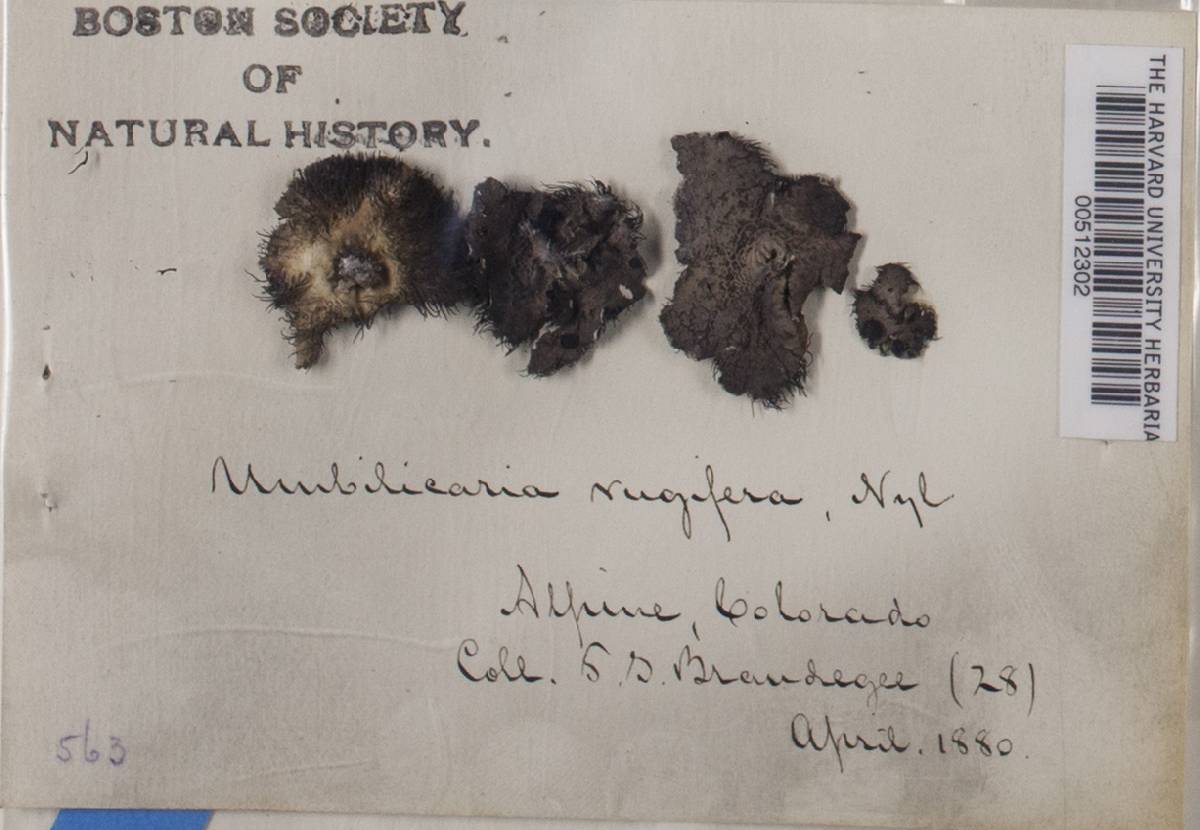 BOSTON SOCIETY
OF
NATURAL HISTORY.
THE HARVARD UNIVERSITY HERBARIA
00512302
Umbilicaria rugifera, Nyl
Alpine, Colorado
Coll. T. S. Brandegee (28)
April. 1880.
563